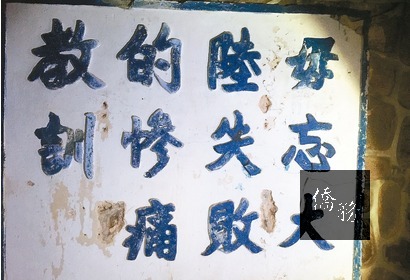 毋忘大
陸失敗
的慘痛
教訓
僑務